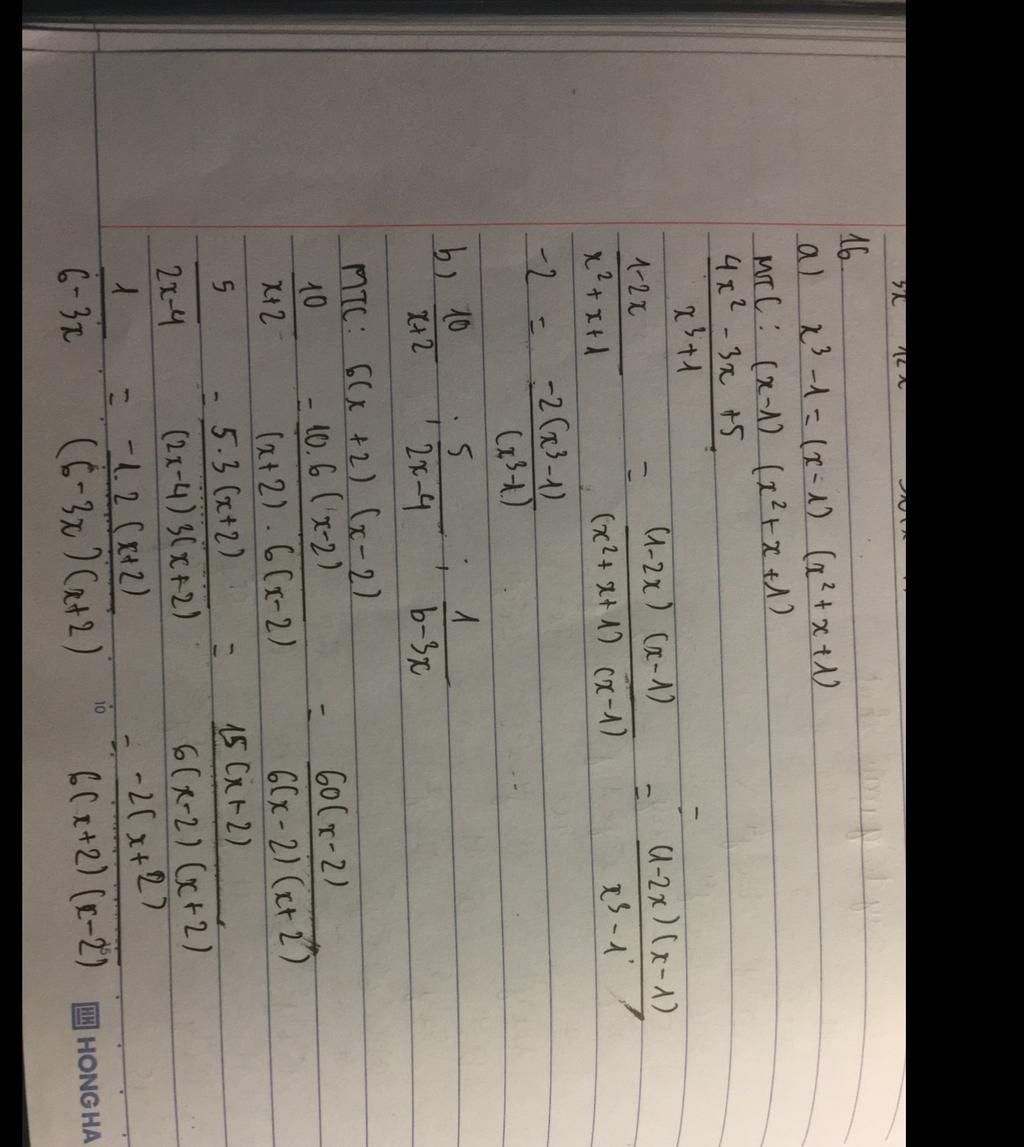 16
a) x³ - 1 = (x - 1) (x² + x + 1)
MTC : (x - 1) (x² + x + 1)
4x² - 3x + 5 / x³ + 1
1 - 2x / x² + x + 1 = (1 - 2x) (x - 1) / (x² + x + 1) (x - 1) = (1 - 2x) (x - 1) / x³ - 1
-2 = -2 (x³ - 1) / (x³ - 1)
b) 10 / x + 2 , 5 / 2x - 4 , 1 / 6 - 3x
MTC : 6(x + 2) (x - 2)
10 / x + 2 = 10.6 (x - 2) / (x + 2) . 6 (x - 2) = 60 (x - 2) / 6(x - 2) (x + 2)
5 / 2x - 4 = 5.3 (x + 2) / (2x - 4) 3(x + 2) = 15 (x + 2) / 6(x - 2) (x + 2)
1 / 6 - 3x = -1.2 (x + 2) / (6 - 3x) (x + 2) = -2 (x + 2) / 6(x + 2) (x - 2)
10
15
HH HONG HA